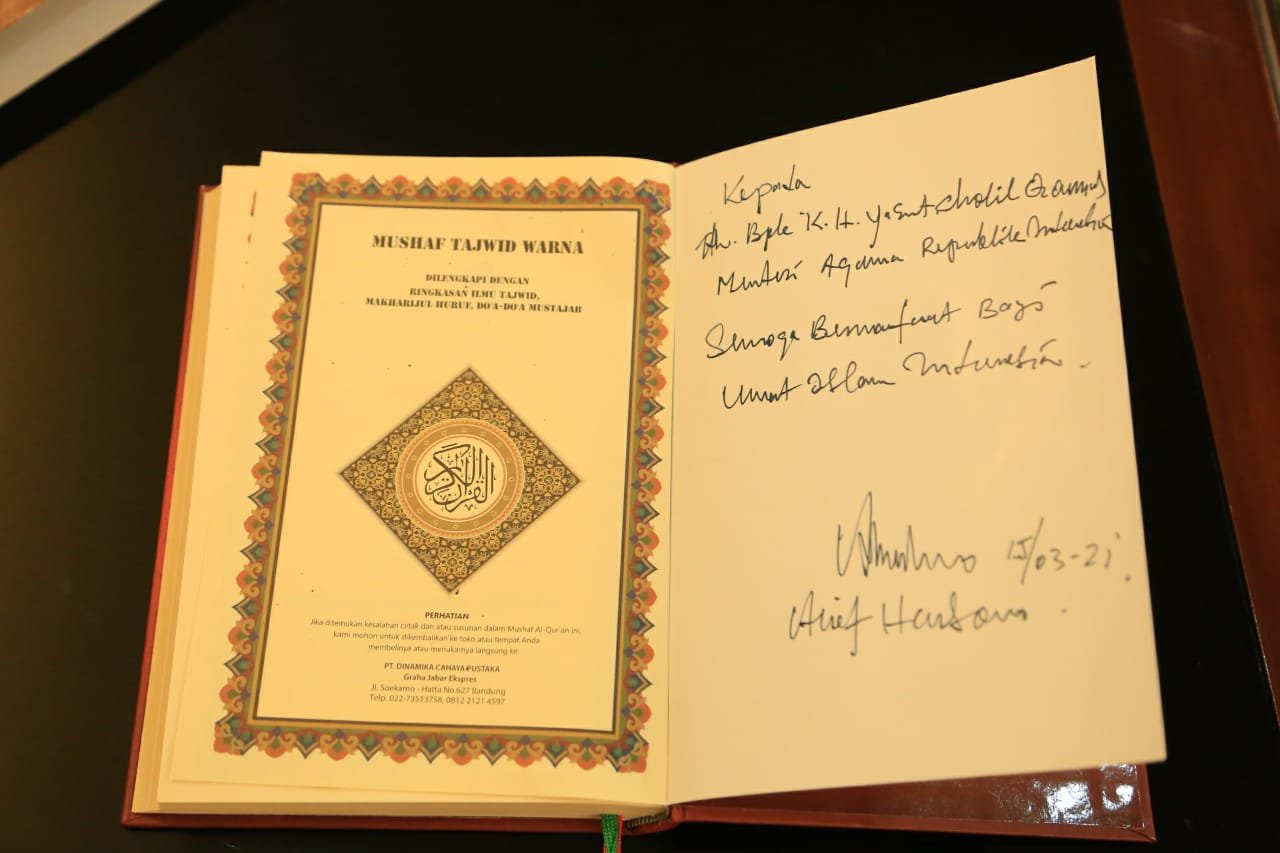 MUSHAF TAJWID WARNA
DILENGKAPI DENGAN
RINGKASAN ILMU TAJWID,
MAKHARIJUL HURUF, DO'A-DO'A MUSTAJAB
القرآن الكريم
PERHATIAN
Jika ditemukan kesalahan cetak dan atau susunan dalam Mushaf Al-Qur'an ini,
kami mohon untuk dikembalikan ke toko atau tempat Anda
membelinya atau menukarnya langsung ke:
PT. DINAMIKA CAHAYA PUSTAKA
Graha Jabar Ekspres
Jl. Soekarno - Hatta No.627 Bandung
Telp. 022-73513758, 0812 2121 4597
Kepada
Yth. Bpk K.H. Yaqut Cholil Qoumas
Menteri Agama Republik Indonesia
Semoga Bermanfaat Bagi
Umat Islam Indonesia.
15/03-21.
Arief Harsono.